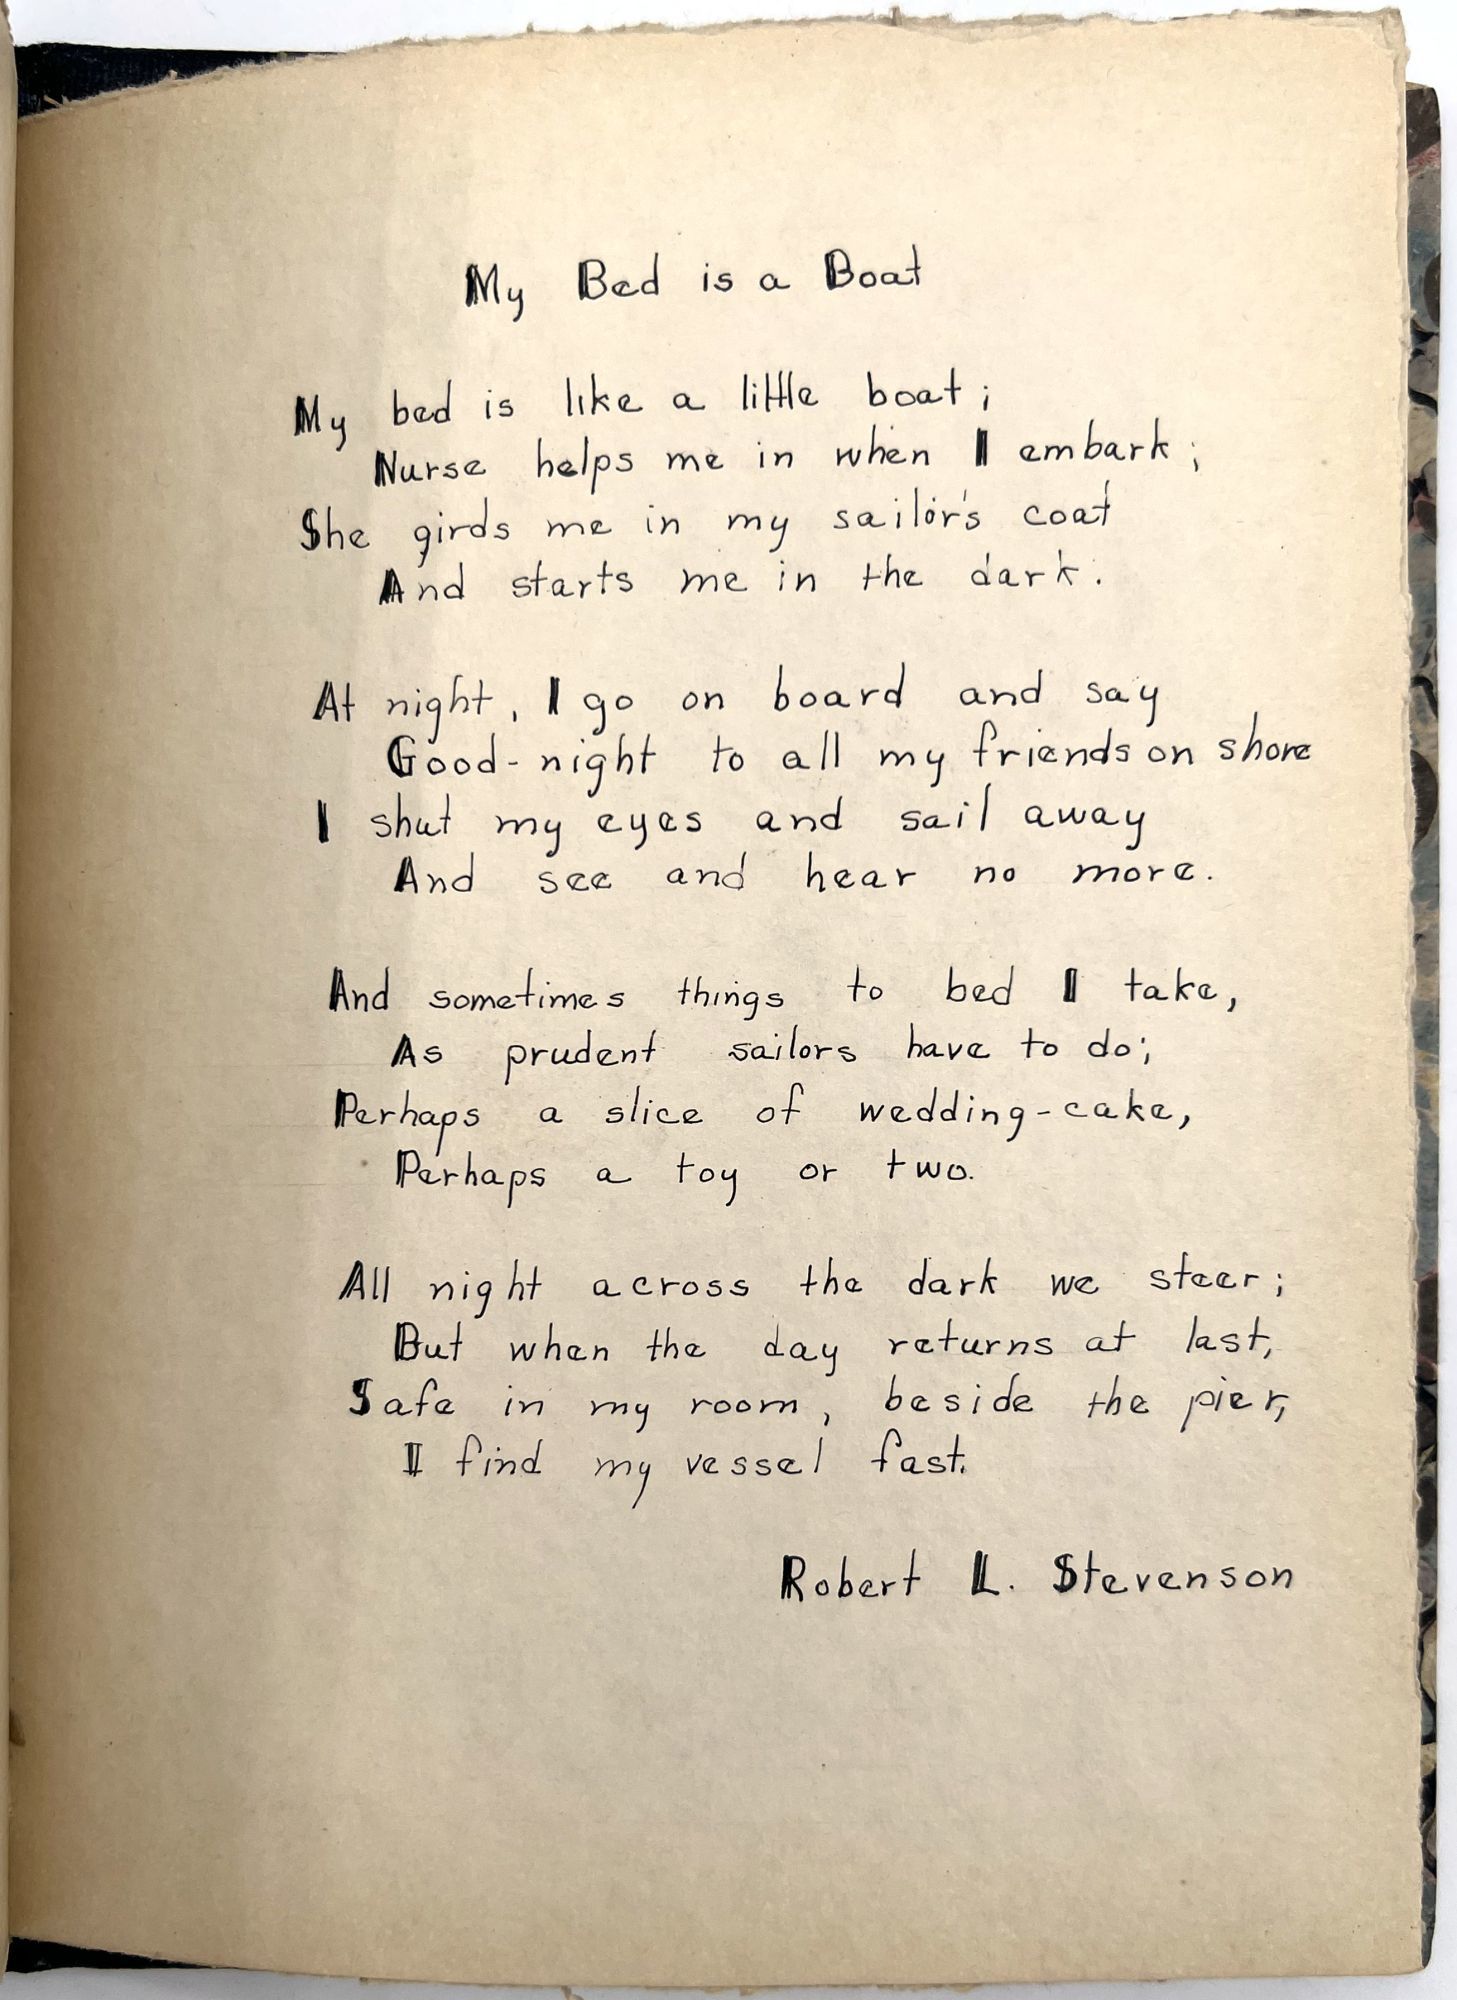 My Bed is a Boat
My bed is like a little boat;
Nurse helps me in when I embark;
She girds me in my sailor's coat
And starts me in the dark.
At night, I go on board and say
Good-night to all my friends on shore
I shut my eyes and sail away
And see and hear no more.
And sometimes things to bed I take,
As prudent sailors have to do;
Perhaps a slice of wedding-cake,
Perhaps a toy or two.
All night across the dark we steer;
But when the day returns at last,
Safe in my room, beside the pier,
I find my vessel fast.
Robert L. Stevenson